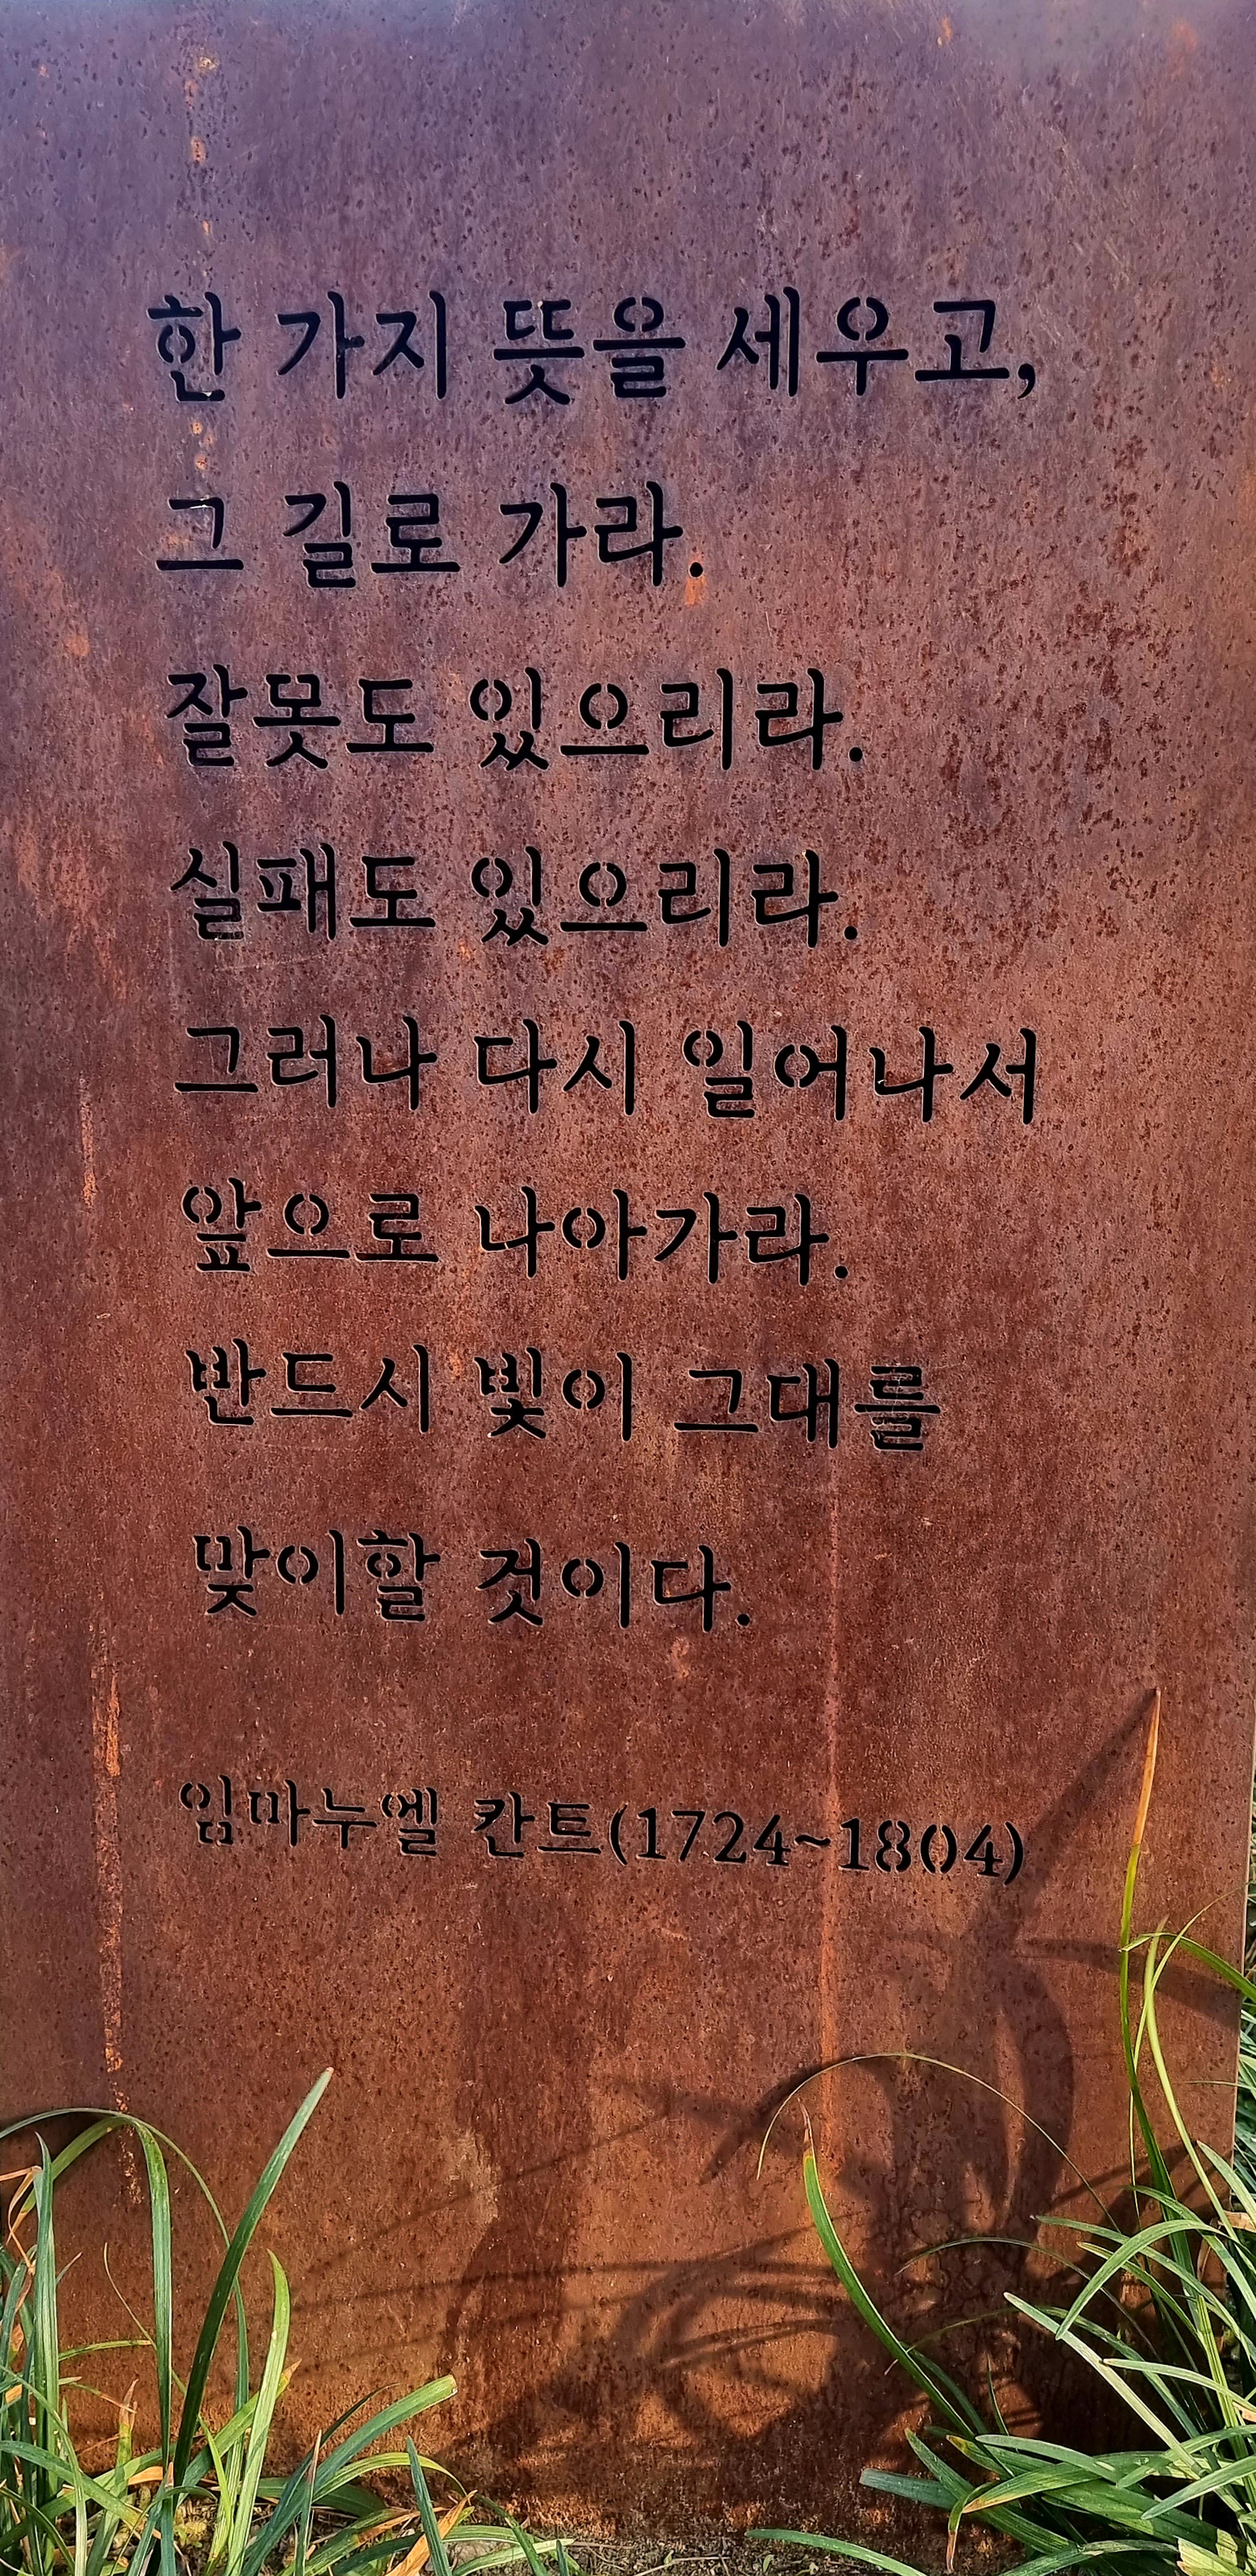 한 가지 뜻을 세우고,
그 길로 가라.
잘못도 있으리라.
실패도 있으리라.
그러나 다시 일어나서
앞으로 나아가라.
반드시 빛이 그대를
맞이할 것이다.
임마누엘 칸트(1724~1804)